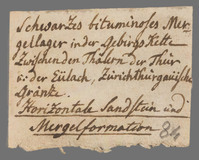 Schwarzes bituminoses Mer=
gellager in der Gebirgs Kette
Zwischen den Thälern der Thur
u: der Eülach, Zürichthurgauische
Gränke.
Horizontale Sandstein und
Mergelformation 84